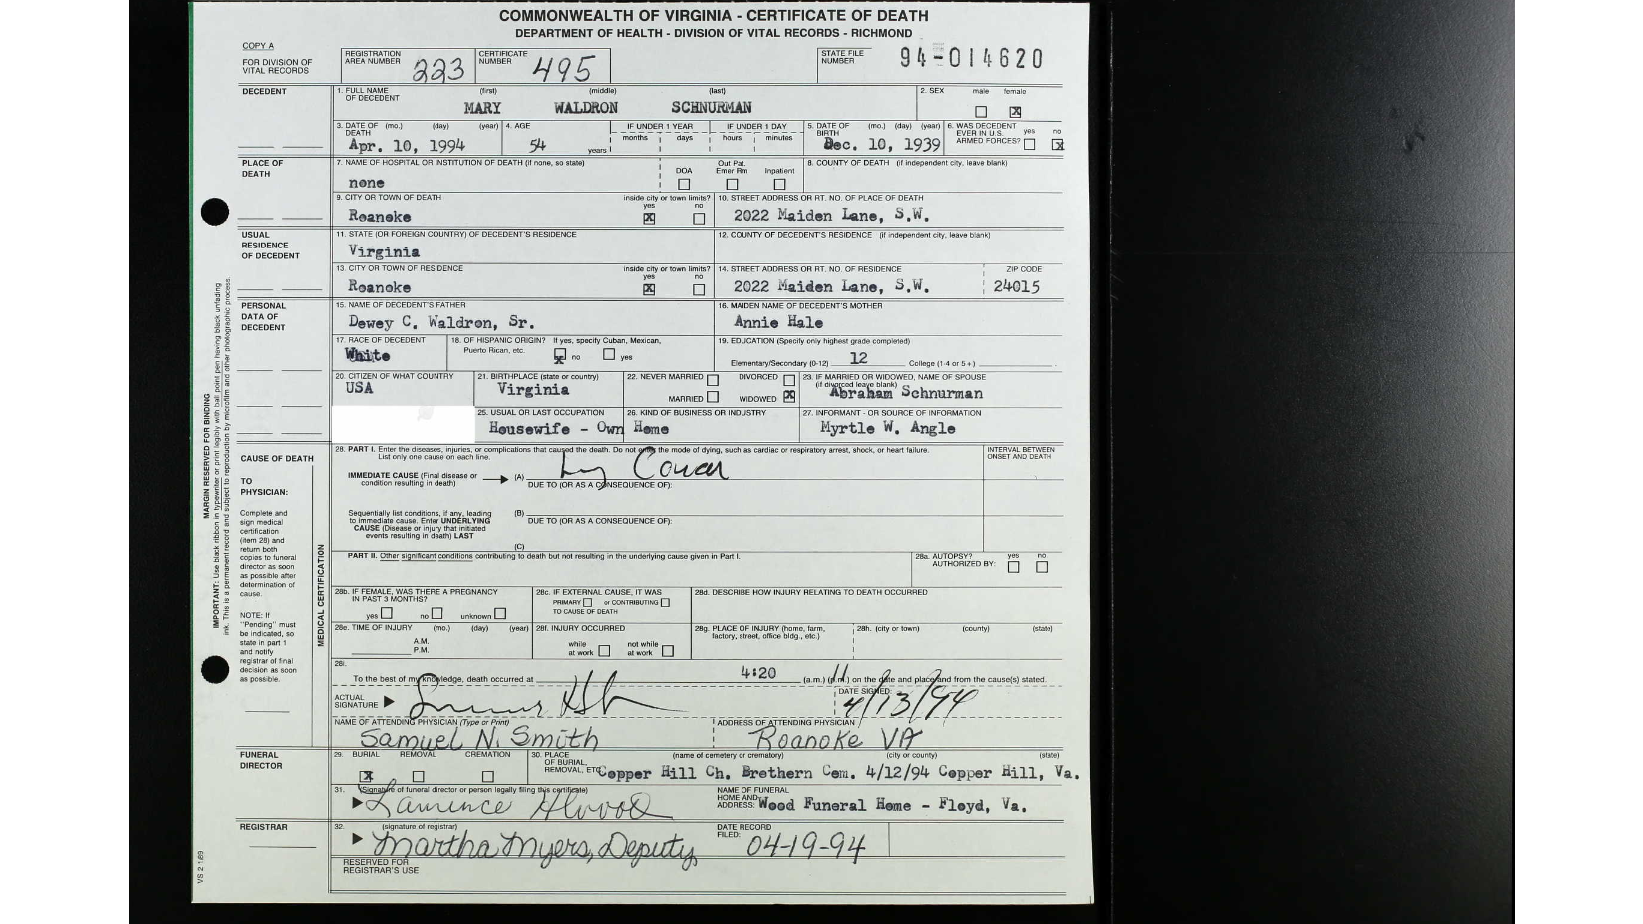 COMMONWEALTH OF VIRGINIA - CERTIFICATE OF DEATH
DEPARTMENT OF HEALTH - DIVISION OF VITAL RECORDS - RICHMOND
COPY A
FOR DIVISION OF VITAL RECORDS
REGISTRATION AREA NUMBER 223
CERTIFICATE NUMBER 495
STATE FILE NUMBER 94-014620
DECEDENT
1. FULL NAME OF DECEDENT (first) (middle) (last)
MARY WALDRON SCHNURMAN
2. SEX male female
3. DATE OF DEATH (mo.) (day) (year)
Apr. 10, 1994
4. AGE
54 years
IF UNDER 1 YEAR months days
IF UNDER 1 DAY hours minutes
5. DATE OF BIRTH (mo.) (day) (year)
Dec. 10, 1939
6. WAS DECEDENT EVER IN U.S. ARMED FORCES? yes no
PLACE OF DEATH
7. NAME OF HOSPITAL OR INSTITUTION OF DEATH (if none, so state)
none
DOA Out Pat. Emer Rm Inpatient
8. COUNTY OF DEATH (if independent city, leave blank)
9. CITY OR TOWN OF DEATH
Roanoke
inside city or town limits? yes no
10. STREET ADDRESS OR RT. NO. OF PLACE OF DEATH
2022 Maiden Lane, S.W.
USUAL RESIDENCE OF DECEDENT
11. STATE (OR FOREIGN COUNTRY) OF DECEDENT'S RESIDENCE
Virginia
12. COUNTY OF DECEDENT'S RESIDENCE (if independent city, leave blank)
13. CITY OR TOWN OF RESIDENCE
Roanoke
inside city or town limits? yes no
14. STREET ADDRESS OR RT. NO. OF RESIDENCE
2022 Maiden Lane, S.W.
ZIP CODE
24015
PERSONAL DATA OF DECEDENT
15. NAME OF DECEDENT'S FATHER
Dewey C. Waldron, Sr.
16. MAIDEN NAME OF DECEDENT'S MOTHER
Annie Hale
17. RACE OF DECEDENT
White
18. OF HISPANIC ORIGIN? If yes, specify Cuban, Mexican, Puerto Rican, etc. no yes
19. EDUCATION (Specify only highest grade completed)
Elementary/Secondary (0-12) 12 College (1-4 or 5+)
20. CITIZEN OF WHAT COUNTRY
USA
21. BIRTHPLACE (state or country)
Virginia
22. NEVER MARRIED DIVORCED
MARRIED WIDOWED
23. IF MARRIED OR WIDOWED, NAME OF SPOUSE (if divorced leave blank)
Abraham Schnurman
25. USUAL OR LAST OCCUPATION
Housewife - Own
26. KIND OF BUSINESS OR INDUSTRY
Home
27. INFORMANT - OR SOURCE OF INFORMATION
Myrtle W. Angle
MARGIN RESERVED FOR BINDING
IMPORTANT: Use black ribbon in typewriter or print legibly with ball point pen having black unfading ink. This is a permanent record and subject to reproduction by microfilm and other photographic process.
CAUSE OF DEATH
TO PHYSICIAN:
Complete and sign medical certification (item 28) and return both copies to funeral director as soon as possible after determination of cause.
NOTE: If "Pending" must be indicated, so state in part 1 and notify registrar of final decision as soon as possible.
MEDICAL CERTIFICATION
28. PART I. Enter the diseases, injuries, or complications that caused the death. Do not enter the mode of dying, such as cardiac or respiratory arrest, shock, or heart failure. List only one cause on each line.
INTERVAL BETWEEN ONSET AND DEATH
IMMEDIATE CAUSE (Final disease or condition resulting in death) (A)
DUE TO (OR AS A CONSEQUENCE OF):
Sequentially list conditions, if any, leading to immediate cause. Enter UNDERLYING CAUSE (Disease or injury that initiated events resulting in death) LAST
(B)
DUE TO (OR AS A CONSEQUENCE OF):
(C)
PART II. Other significant conditions contributing to death but not resulting in the underlying cause given in Part I.
28a. AUTOPSY? AUTHORIZED BY: yes no
28b. IF FEMALE, WAS THERE A PREGNANCY IN PAST 3 MONTHS? yes no unknown
28c. IF EXTERNAL CAUSE, IT WAS PRIMARY or CONTRIBUTING TO CAUSE OF DEATH
28d. DESCRIBE HOW INJURY RELATING TO DEATH OCCURRED
28e. TIME OF INJURY (mo.) (day) (year) A.M. P.M.
28f. INJURY OCCURRED while at work not while at work
28g. PLACE OF INJURY (home, farm, factory, street, office bldg., etc.)
28h. (city or town) (county) (state)
28i.
To the best of my knowledge, death occurred at 4:20 (a.m.) (p.m.) on the date and place and from the cause(s) stated.
ACTUAL SIGNATURE
DATE SIGNED: 4/13/94
NAME OF ATTENDING PHYSICIAN (Type or Print)
Samuel N. Smith
ADDRESS OF ATTENDING PHYSICIAN
Roanoke VA
FUNERAL DIRECTOR
29. BURIAL REMOVAL CREMATION
30. PLACE OF BURIAL, REMOVAL, ETC. (name of cemetery or crematory) (city or county) (state)
Copper Hill Ch. Brethern Cem. 4/12/94 Copper Hill, Va.
31. (Signature of funeral director or person legally filing this certificate)
NAME OF FUNERAL HOME AND ADDRESS: Wood Funeral Home - Floyd, Va.
REGISTRAR
32. (signature of registrar)
Martha Myers, Deputy
DATE RECORD FILED: 04-19-94
RESERVED FOR REGISTRAR'S USE
VS 2 1/89